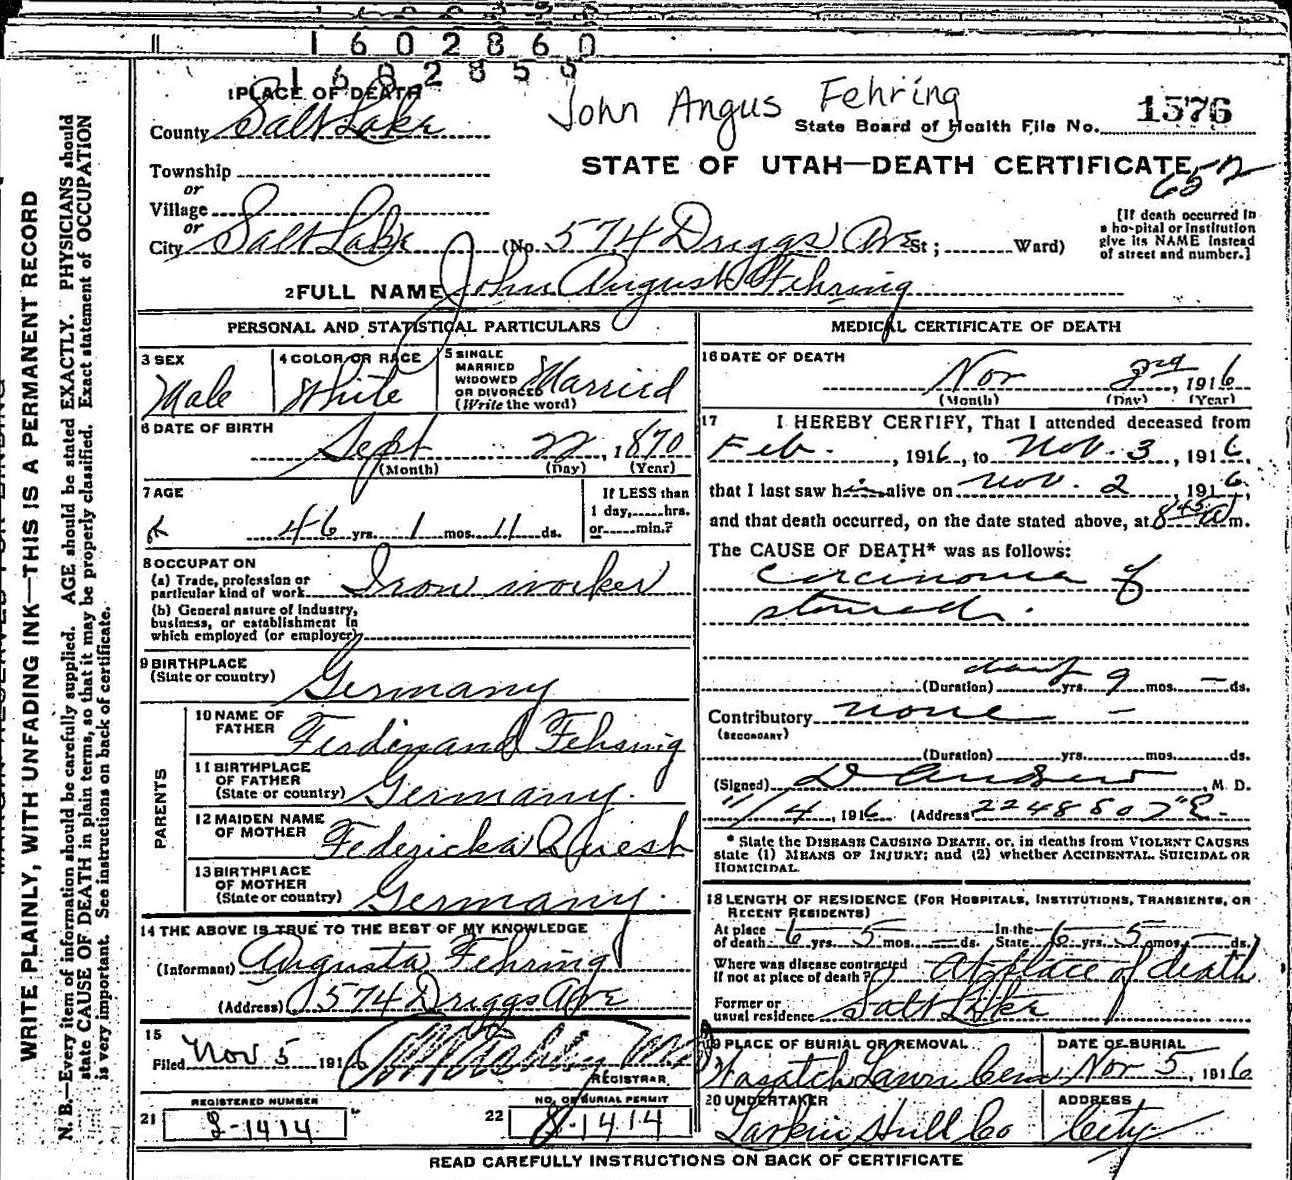 1602860
1602855
1 PLACE OF DEATH
John Angus Fehring
County Salt Lake
State Board of Health File No. 1576
Township
STATE OF UTAH—DEATH CERTIFICATE
or
Village
or
City Salt Lake (No. 574 Driggs Ave St; Ward)
[If death occurred in a hospital or institution give its NAME instead of street and number.]
2 FULL NAME John August Fehring
PERSONAL AND STATISTICAL PARTICULARS
3 SEX Male
4 COLOR OR RACE White
5 SINGLE MARRIED WIDOWED OR DIVORCED (Write the word) Married
6 DATE OF BIRTH
Sept 22, 1870
(Month) (Day) (Year)
7 AGE
46 yrs. 1 mos. 11 ds.
If LESS than 1 day, hrs. or min.?
8 OCCUPATION
(a) Trade, profession or particular kind of work Iron worker
(b) General nature of industry, business, or establishment in which employed (or employer)
9 BIRTHPLACE
(State or country) Germany
PARENTS
10 NAME OF FATHER Ferdinand Fehring
11 BIRTHPLACE OF FATHER (State or country) Germany.
12 MAIDEN NAME OF MOTHER Federicka
13 BIRTHPLACE OF MOTHER (State or country) Germany.
14 THE ABOVE IS TRUE TO THE BEST OF MY KNOWLEDGE
(Informant) Augusta Fehring
(Address) 574 Driggs Ave
15
Filed Nov 5 1916
REGISTRAR
21 REGISTERED NUMBER
22 NO. OF BURIAL PERMIT
8-1414
MEDICAL CERTIFICATE OF DEATH
16 DATE OF DEATH
Nov 3rd, 1916
(Month) (Day) (Year)
17 I HEREBY CERTIFY, That I attended deceased from
Feb. , 1916, to Nov. 3, 1916,
that I last saw him alive on Nov. 2 1916,
and that death occurred, on the date stated above, at 8 45 a m.
The CAUSE OF DEATH* was as follows:
Carcinoma of
stomach.
(Duration) yrs. 9 mos. — ds.
Contributory none —
(SECONDARY)
(Duration) yrs. mos. ds.
(Signed) M. D.
11/4, 1916 (Address)
* State the DISEASE CAUSING DEATH, or, in deaths from VIOLENT CAUSES state (1) MEANS OF INJURY; and (2) whether ACCIDENTAL, SUICIDAL OR HOMICIDAL.
18 LENGTH OF RESIDENCE (FOR HOSPITALS, INSTITUTIONS, TRANSIENTS, OR RECENT RESIDENTS)
At place of death 6 yrs. 5 mos. — ds. In the State 6 yrs. 5 mos. — ds.
Where was disease contracted if not at place of death? At place of death
Former or usual residence Salt Lake
19 PLACE OF BURIAL OR REMOVAL
Wasatch Lawn Cem
DATE OF BURIAL
Nov 5, 1916
20 UNDERTAKER
Larkin Hull Co
ADDRESS
City
READ CAREFULLY INSTRUCTIONS ON BACK OF CERTIFICATE
WRITE PLAINLY, WITH UNFADING INK—THIS IS A PERMANENT RECORD
N. B.—Every item of information should be carefully supplied. AGE should be stated EXACTLY. PHYSICIANS should
state CAUSE OF DEATH in plain terms, so that it may be properly classified. Exact statement of OCCUPATION
is very important. See instructions on back of certificate.